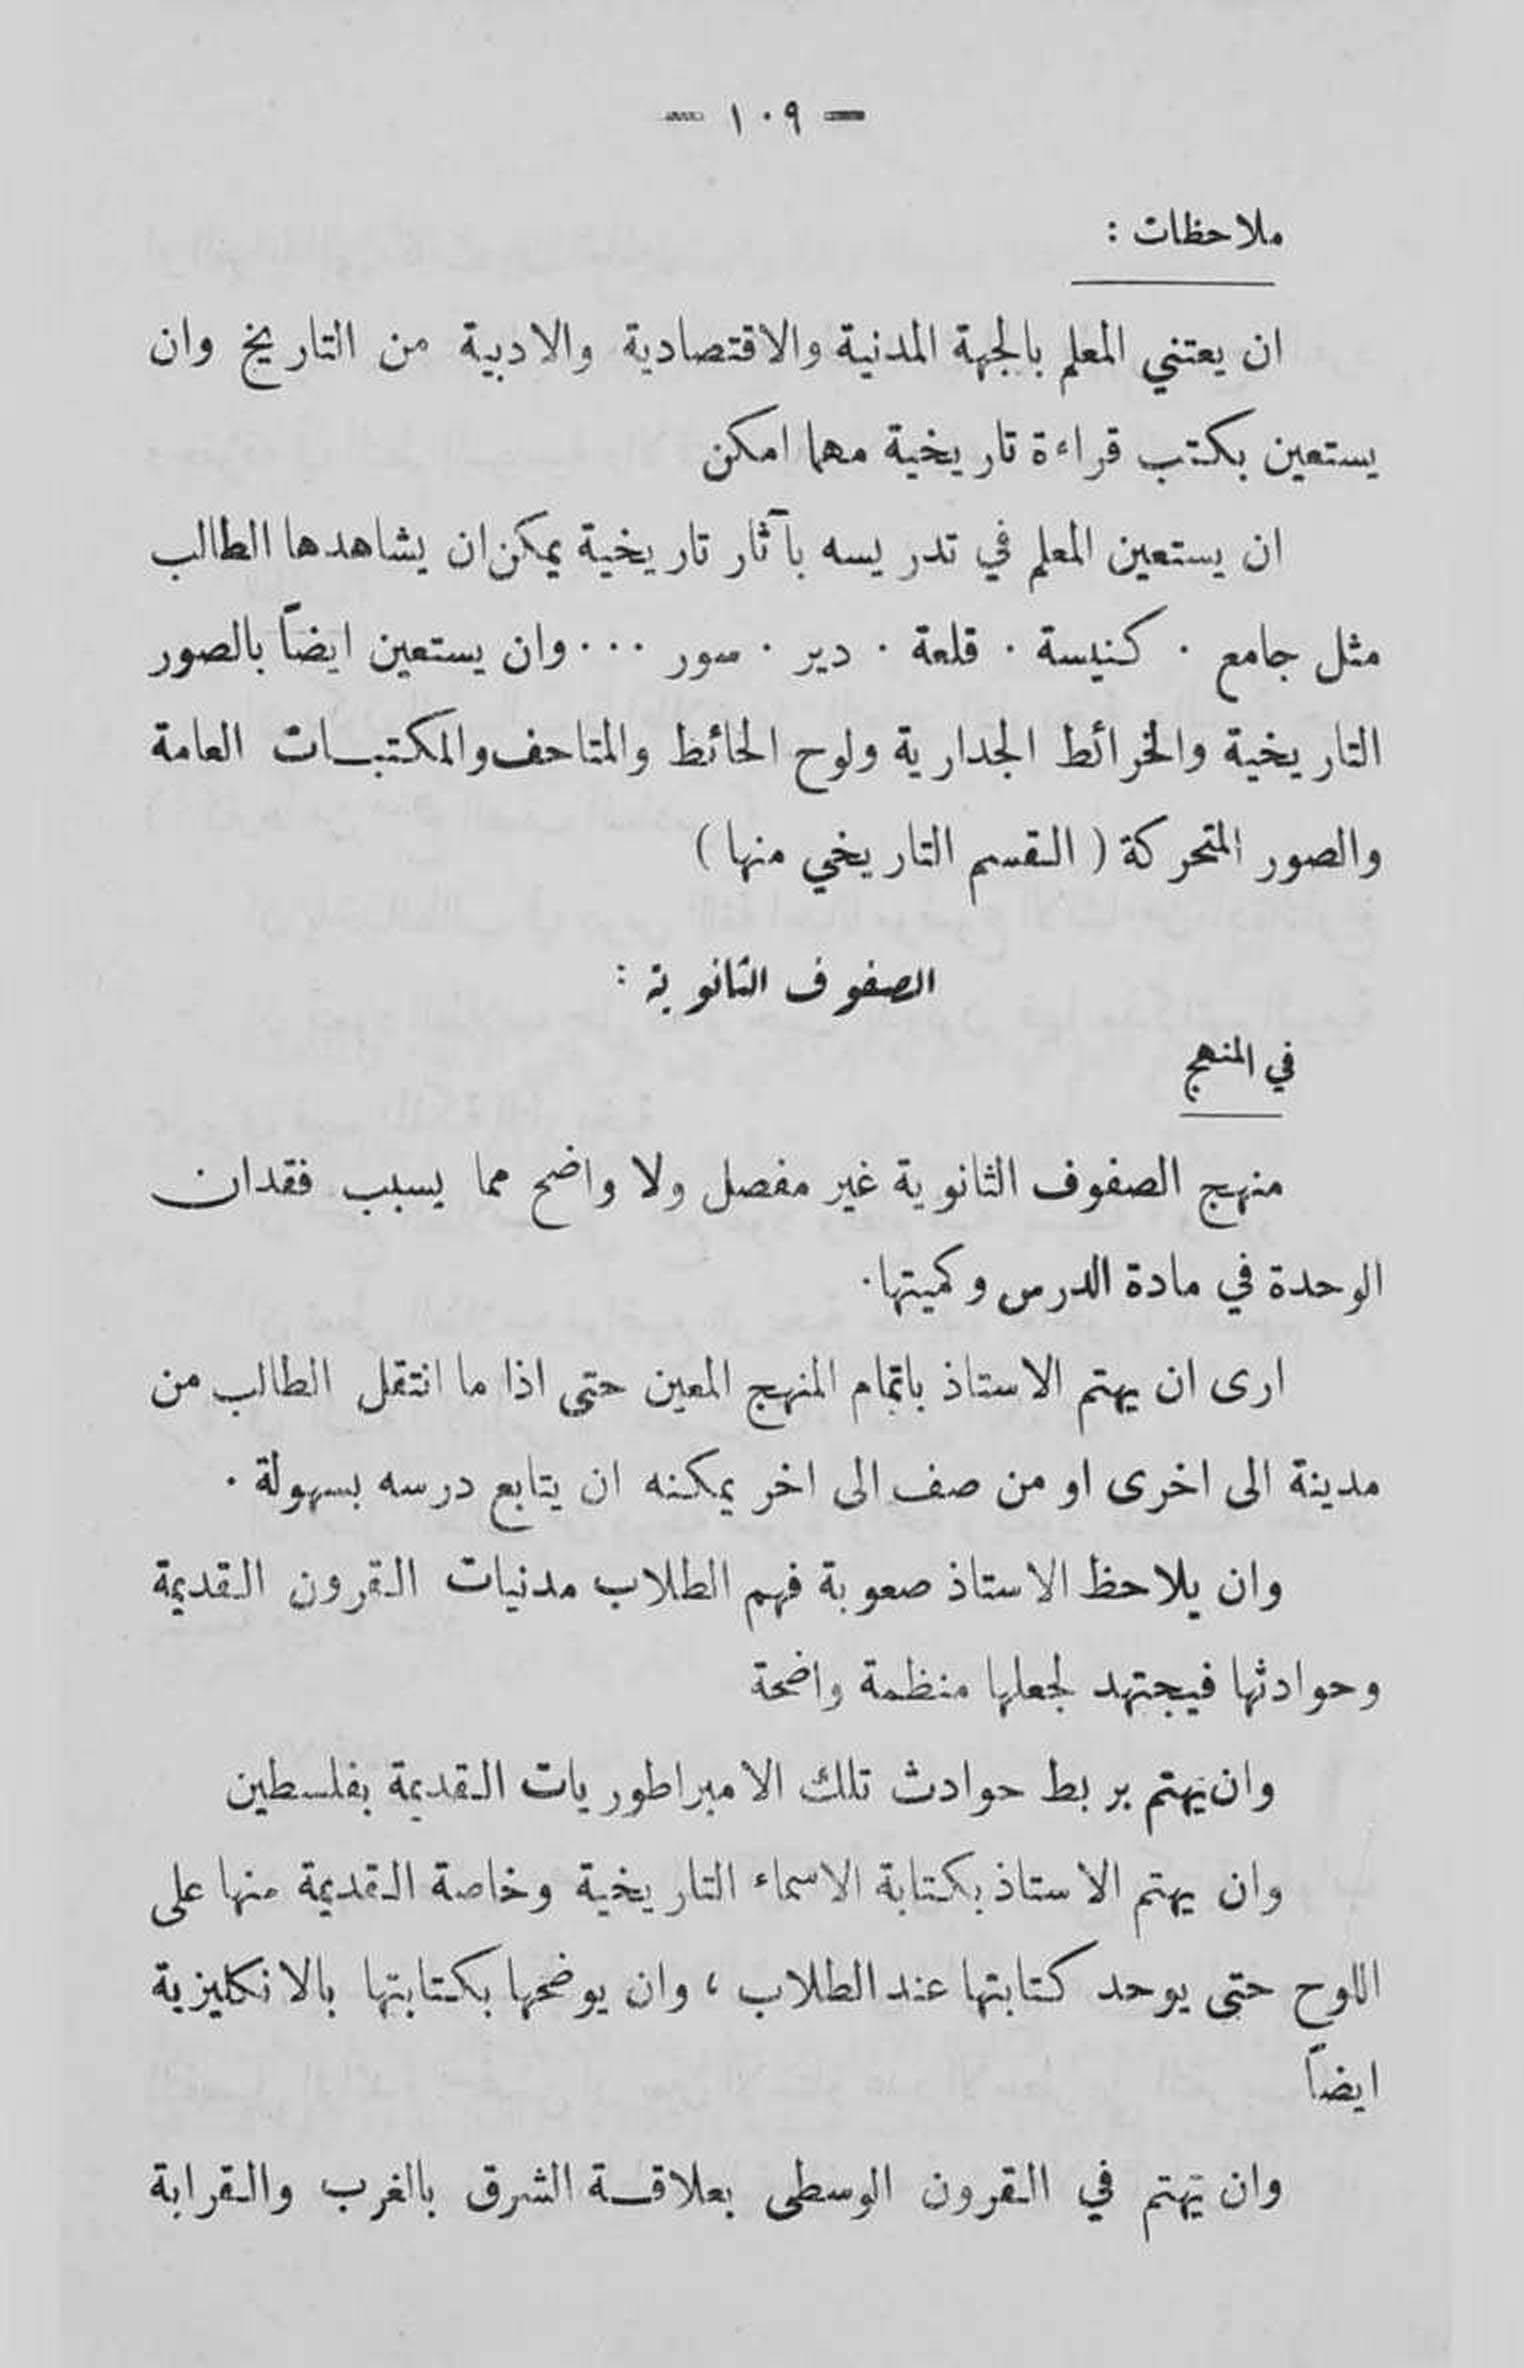 — ١٠٩ —
ملاحظات :
ان يعتني المعلم بالجهة المدنية والاقتصادية والادبية من التاريخ وان
يستعين بكتب قراءة تاريخية مهما امكن
ان يستعين المعلم في تدريسه بآثار تاريخية يمكن ان يشاهدها الطالب
مثل جامع . كنيسة . قلعة . دير . سور . . . وان يستعين ايضاً بالصور
التاريخية والخرائط الجدارية ولوح الحائط والمتاحف والمكتبات العامة
والصور المتحركة ( القسم التاريخي منها )
الصفوف الثانوية :
في المنهج
منهج الصفوف الثانوية غير مفصل ولا واضح مما يسبب فقدان
الوحدة في مادة الدرس وكميتها .
ارى ان يهتم الاستاذ باتمام المنهج المعين حتى اذا ما انتقل الطالب من
مدينة الى اخرى او من صف الى اخر يمكنه ان يتابع درسه بسهولة .
وان يلاحظ الاستاذ صعوبة فهم الطلاب مدنيات القرون القديمة
وحوادثها فيجتهد لجعلها منظمة واضحة
وان يهتم بربط حوادث تلك الامبراطوريات القديمة بفلسطين
وان يهتم الاستاذ بكتابة الاسماء التاريخية وخاصة القديمة منها على
اللوح حتى يوحد كتابتها عند الطلاب ، وان يوضحها بكتابتها بالانكليزية
ايضاً
وان يهتم في القرون الوسطى بعلاقة الشرق بالغرب والقرابة